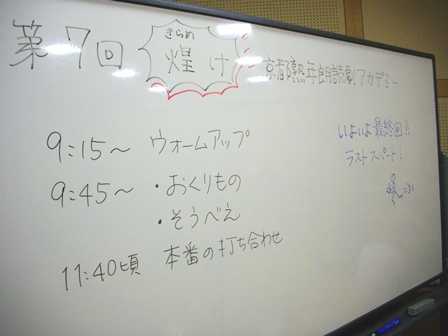 第7回 煌け 京都熟年朗読劇アカデミー
きらめ
9:15〜 ウォームアップ
9:45〜 ・おくりもの
・そうべえ
11:40頃 本番の打ち合わせ
いよいよ最終回!!
ラストスパート!